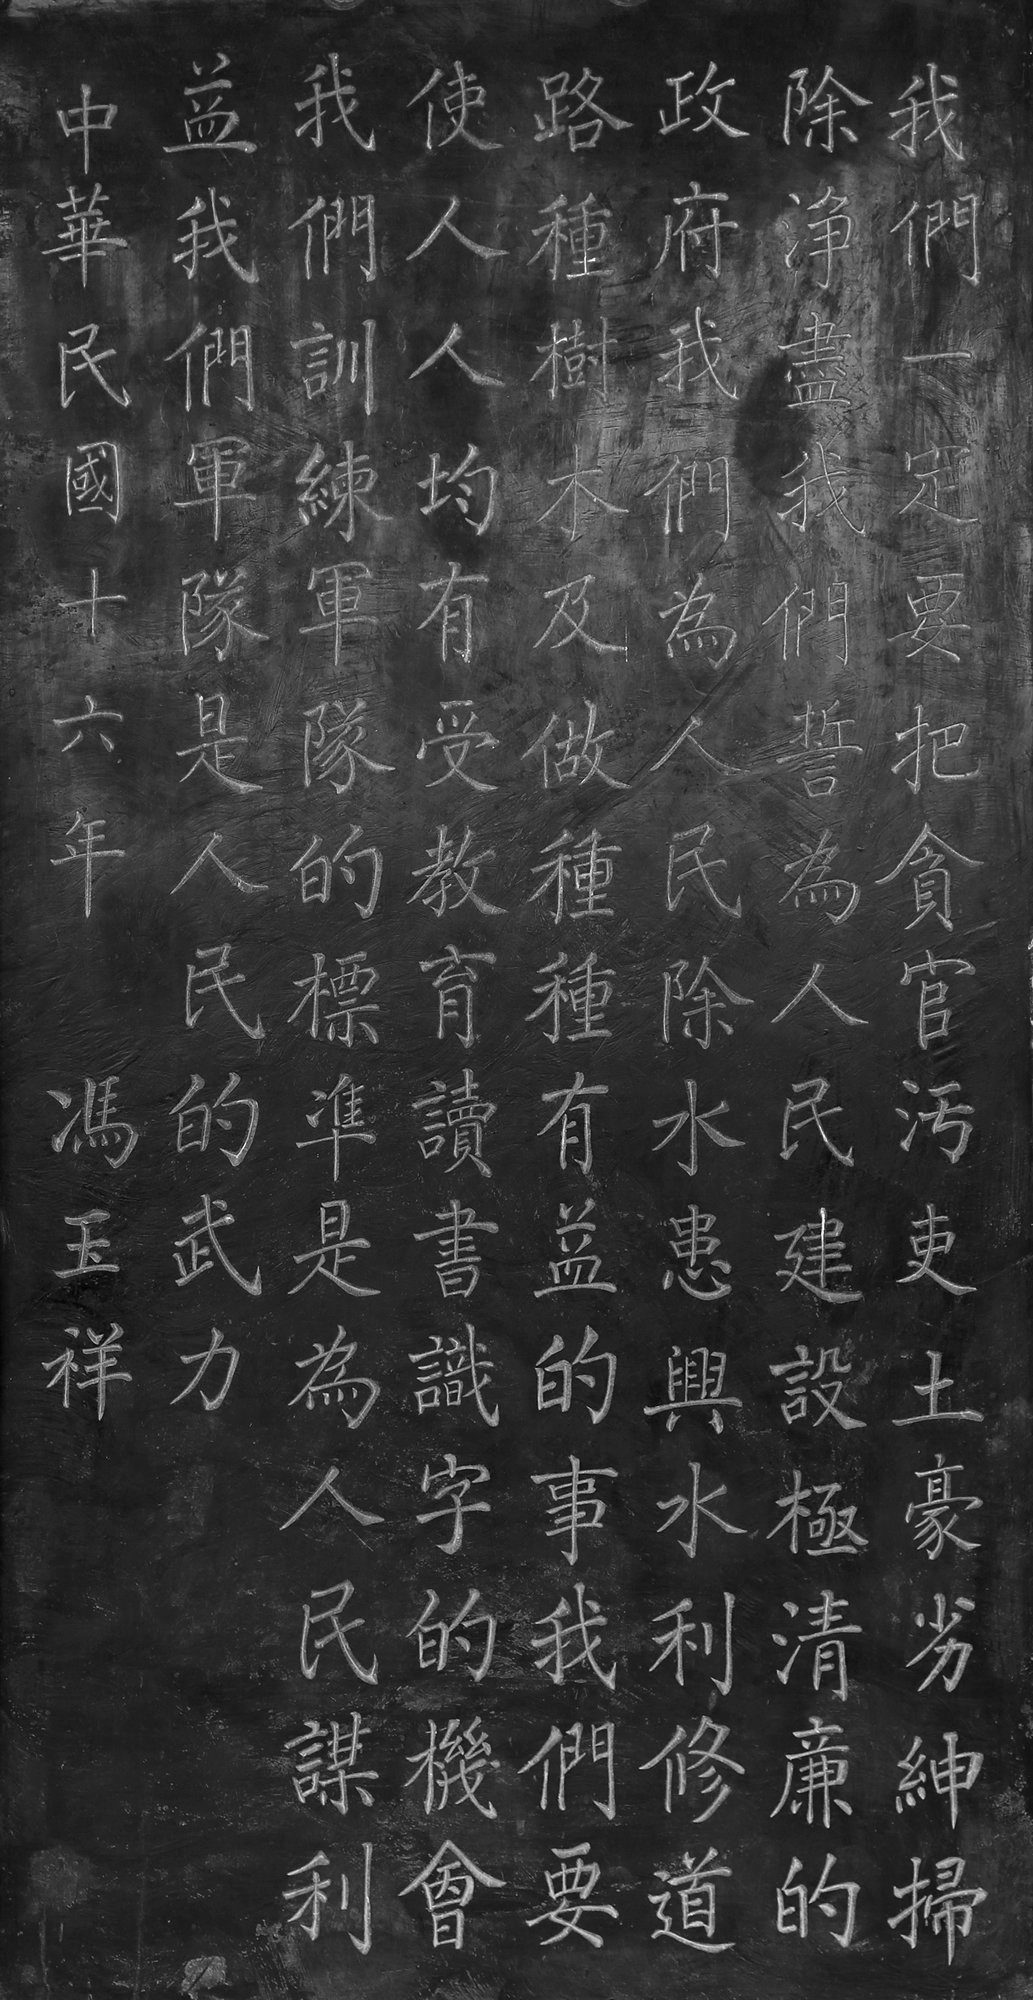 我們一定要把貪官污吏土豪劣紳掃
除淨盡我們誓為人民建設極清廉的
政府我們為人民除水患興水利修道
路種樹木及做種種有益的事我們要
使人人均有受教育讀書識字的機會
我們訓練軍隊的標準是為人民謀利
益我們軍隊是人民的武力
中華民國十六年 馮玉祥